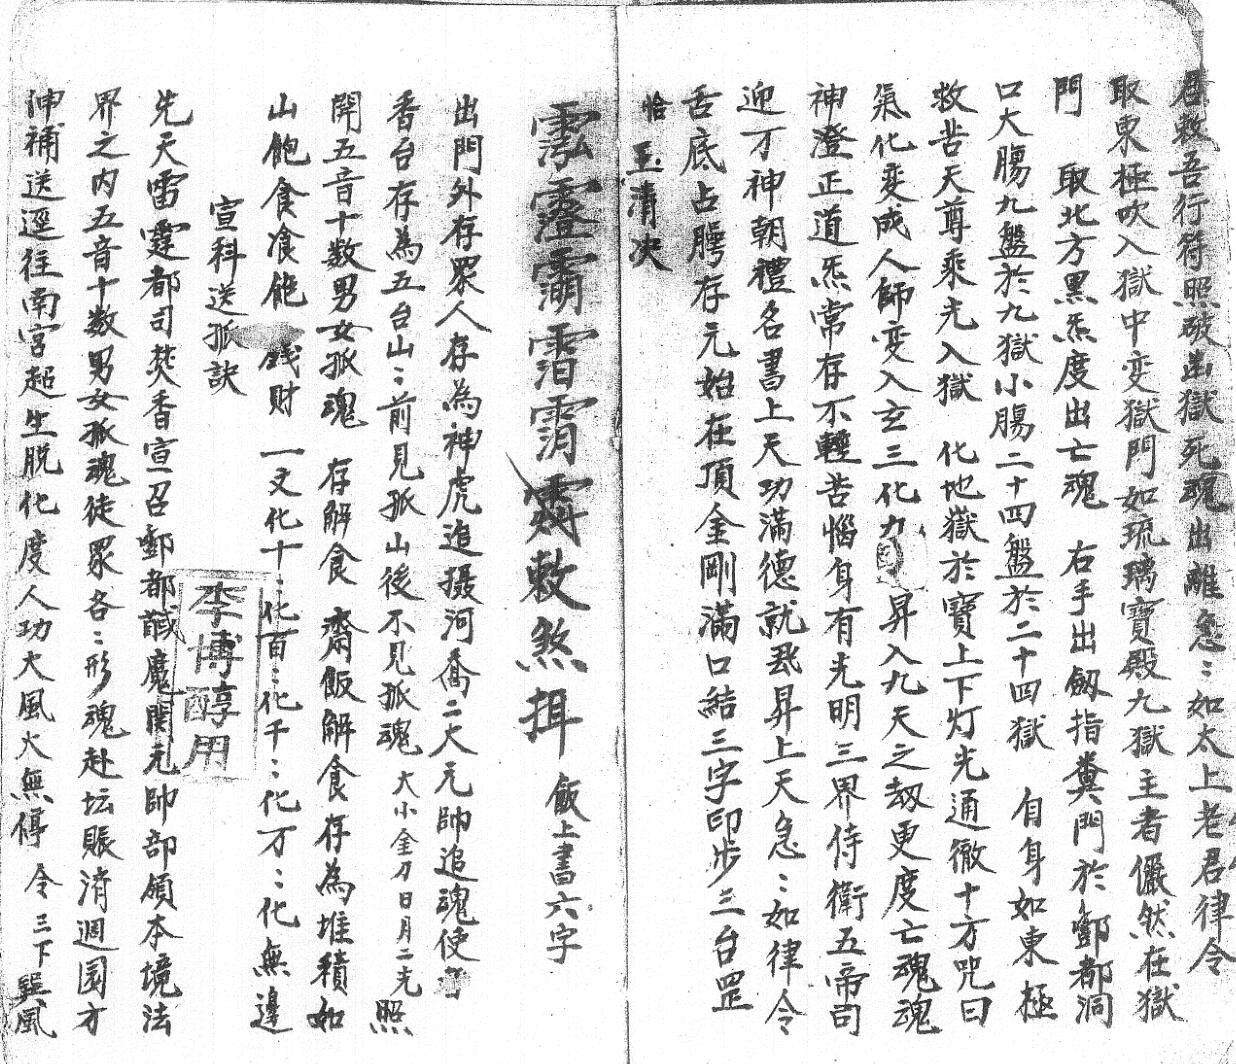 君敕吾行符照破幽獄死魂出離急〻如太上老君律令
取東極吹入獄中变獄門如琉璃寶殿九獄主者儼然在獄
門　取北方黑炁度出亡魂　右手出劔指糞門於酆都洞
口大腸九盤於九獄小腸二十四盤於二十四獄　自身如東極
救苦天尊乘光入獄　化地嶽於寶上下灯光通徹十方咒曰
氣化变成人師变入玄三化力　昇入九天之劫更度亡魂魂
神澄正道炁常存不輕苦惱身有光明三界侍衛五帝司
迎万神朝禮名書上天功滿德就飛昇上天急〻如律令
舌底占腭存元始在頂金剛滿口結三字印步三台罡
恰　玉清决
敕煞　飯上書六字
出門外存眾人存為神虎追摄河喬二大元帥追魂使者
香台存為五台山〻前見孤山後不見孤魂大小金刀日月二光照
開五音十数男女孤魂　存解食　齋飯解食存為堆積如
山飽食飡飽　錢財一文化十〻化百〻化千〻化万〻化無邊
宣科送孤訣
先天雷霆都司焚香宣召酆都馘魔関元帥部領本境法
界之内五音十数男女孤魂徒眾各〻形魂赴坛賑濟週圓方
伸補送逕往南宮超生脱化度人功大風大無停　令三下　巽風
李博醇用